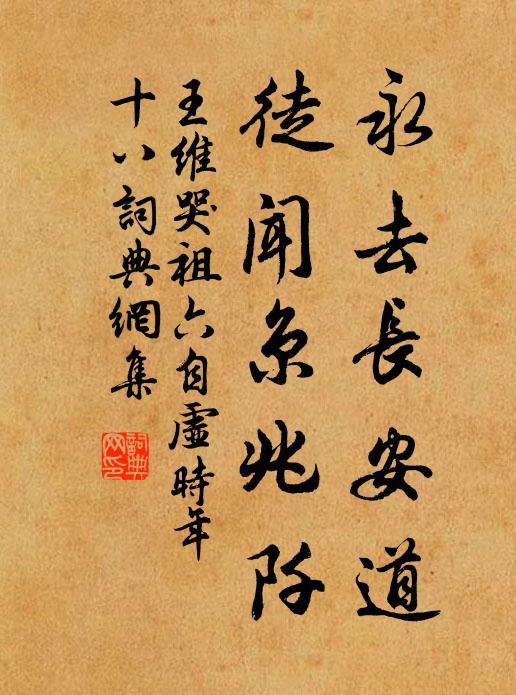 永去長安道
徒聞京兆阡
王維哭祖六自虛時年
十八詞典網集
詞典網印